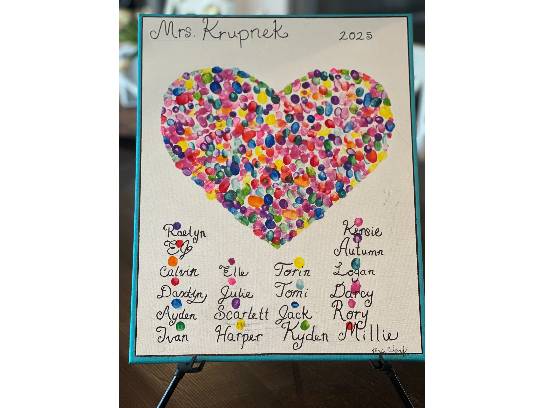 Mrs. Krupnek 2025
Raelyn Kensie
EJ Autumn
Calvin Elle Torin Logan
Daxtyn Julie Tomi Darcy
Ayden Scarlett Jack Rory
Ivan Harper Kyden Millie